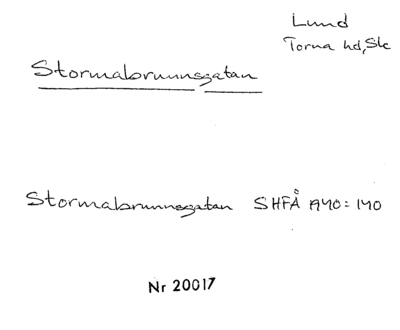 Lund
Torna hd, Sk
Stormabrunnsgatan
Stormabrunnsgatan SHFÅ 1940: 140
Nr 20017